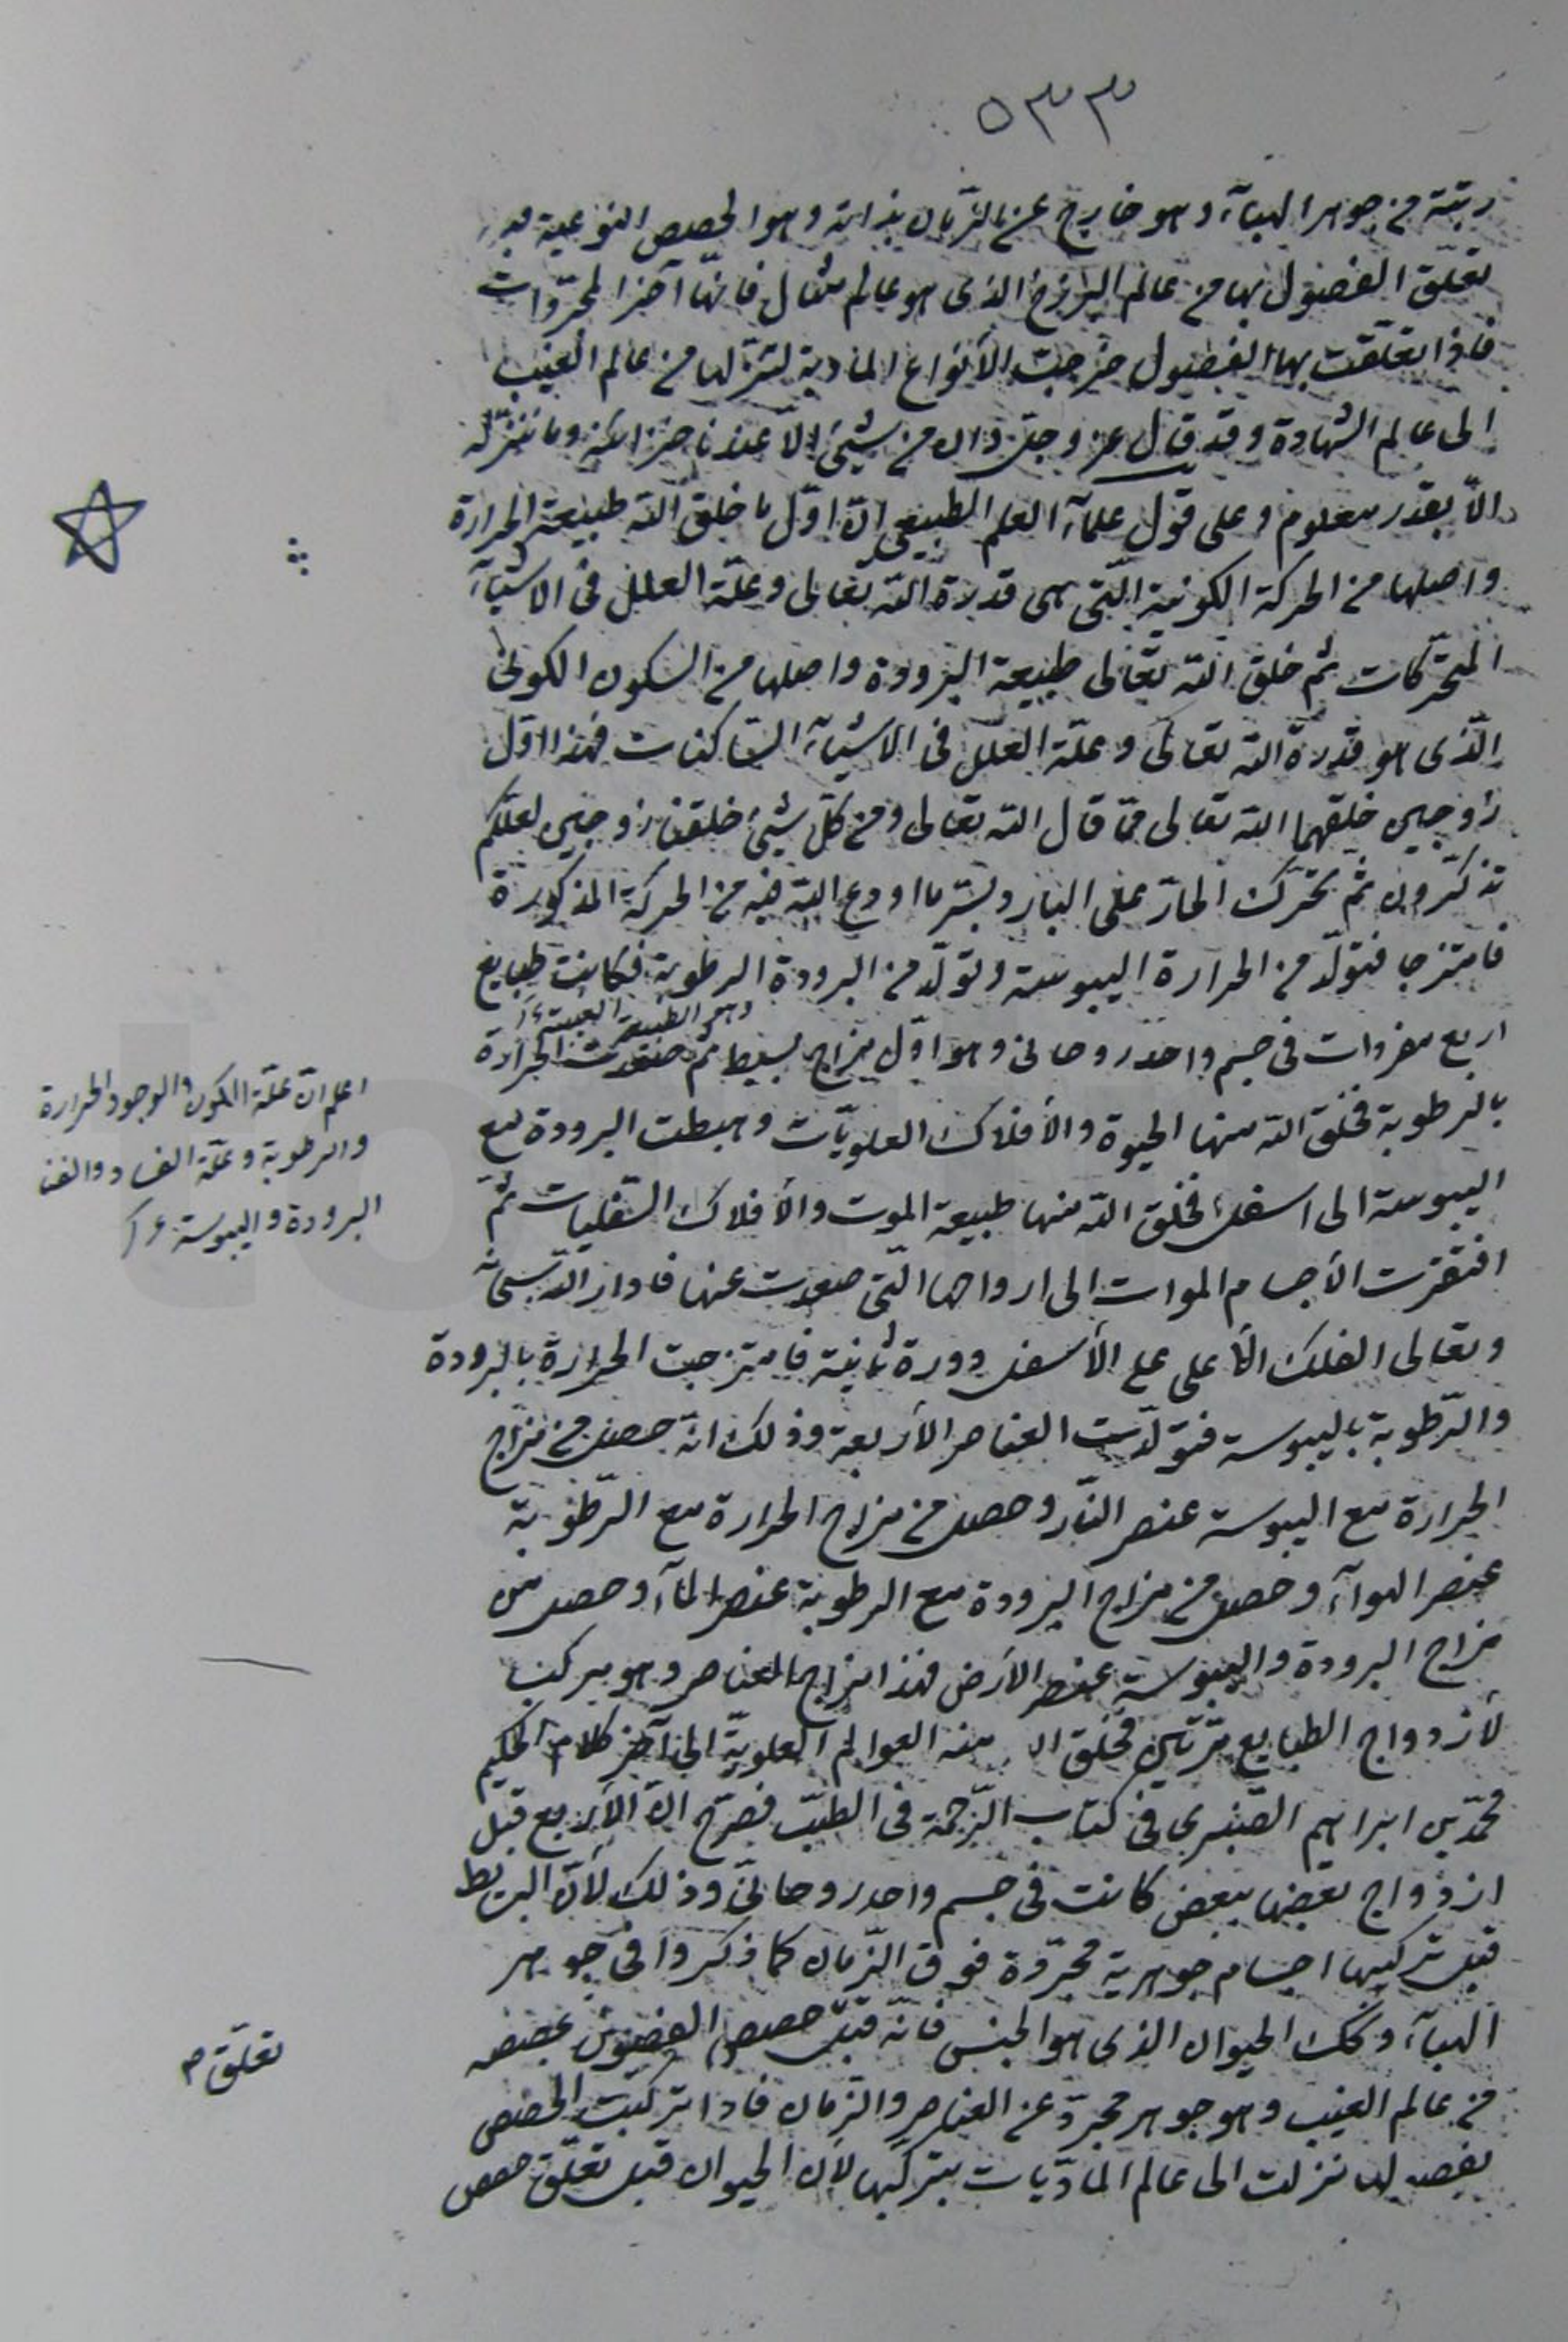 ٥٣٣
رتبته من جوهر الهبآء وهو خارج عن الزمان بذاته وهو الحصص النوعية
تعلّق الفصول بها من عالم البرزخ الذى هو عالم مثال فانّها آخر المجرّدات
فاذا تعلّقت بها الفصول خرجت الأنواع المادية لتنزلها من عالم الغيب
الى عالم الشهادة وقد قال عز وجل وان من شيئ الا عندنا خزائنه وما ننزله
الّا بقدر معلوم وعلى قول علمآء العلم الطبيعى انّ اوّل ما خلق الله طبيعة الحرارة
واصلها من الحركة الكونية الّتى هى قدرة الله تعالى وعلّة العلل فى الاشيآء
المتحركات ثم خلق الله تعالى طبيعة البرودة واصلها من السكون الكونى
الّذى هو قدرة الله تعالى وعلّة العلل فى الاشيآء الساكنات فهذا اوّل
زوجين خلقهما الله تعالى فمّا قال الله تعالى ومن كلّ شيئ خلقنا زوجين لعلكم
تذكّرون ثم تحرّك الحارّ على البارد بسّر ما اودع الله فيه من الحركة المذكورة
فامتزجا فتولّد من الحرارة اليبوسة وتولّد من البرودة الرطوبة فكانت طبايع
اربع مفردات فى جسم واحد روحانى وهو اوّل مزاج بسيط ثم صعدت الحرارة
بالرطوبة فخلق الله منها الحيوة والأفلاك العلويّات وهبطت البرودة مع
اليبوسة الى اسفل فخلق الله منها طبيعة الموت والأفلاك السّفليات ثمّ
افتقرت الأجسام الموات الى ارواحها الّتى صعدت عنها فادار الله سبحانه
وتعالى الفلك الأعلى على الأسفل دورة ثانية فامتزجت الحرارة بالبرودة
والرّطوبة باليبوسة فتولّدت العناصر الأربعة وذلك انّه حصل من مزاج
الحرارة مع اليبوسة عنصر النّار وحصل من مزاج الحرارة مع الرّطوبة
عنصر الهوآء وحصل من مزاج البرودة مع الرطوبة عنصر المآء وحصل من
مزاج البرودة واليبوسة عنصر الأرض فهذا مزاج العناصر وهو مركب
لأزدواج الطبايع مرّتين فخلق منه العوالم العلويّة الى آخر كلام الحكيم
محمّد بن ابراهيم الصّنبرى فى كتاب الرّحمة فى الطبّ فصرّح انّ الأربع قبل
ازدواج بعضها ببعض كانت فى جسم واحد روحانىّ وذلك لأنّ البسائط
قبل تركيبها اجسام جوهرية مجرّدة فوق الزّمان كما ذكروا فى جوهر
الهبآء وكك الحيوان الذى هو الجنس فانّه قبل حصص الفصول بحصصه
من عالم الغيب وهو جوهر مجرّد عن العناصر والزّمان فاذا تركّبت الحصص
بفصولها نزلت الى عالم الماديّات بتركّبها لأن الحيوان قبل تعلّق حصص
اعلم انّ علّة الكون والوجود الحرارة
والرطوبة وعلّة الفساد والفنا
البرودة واليبوسة
تعلّق م